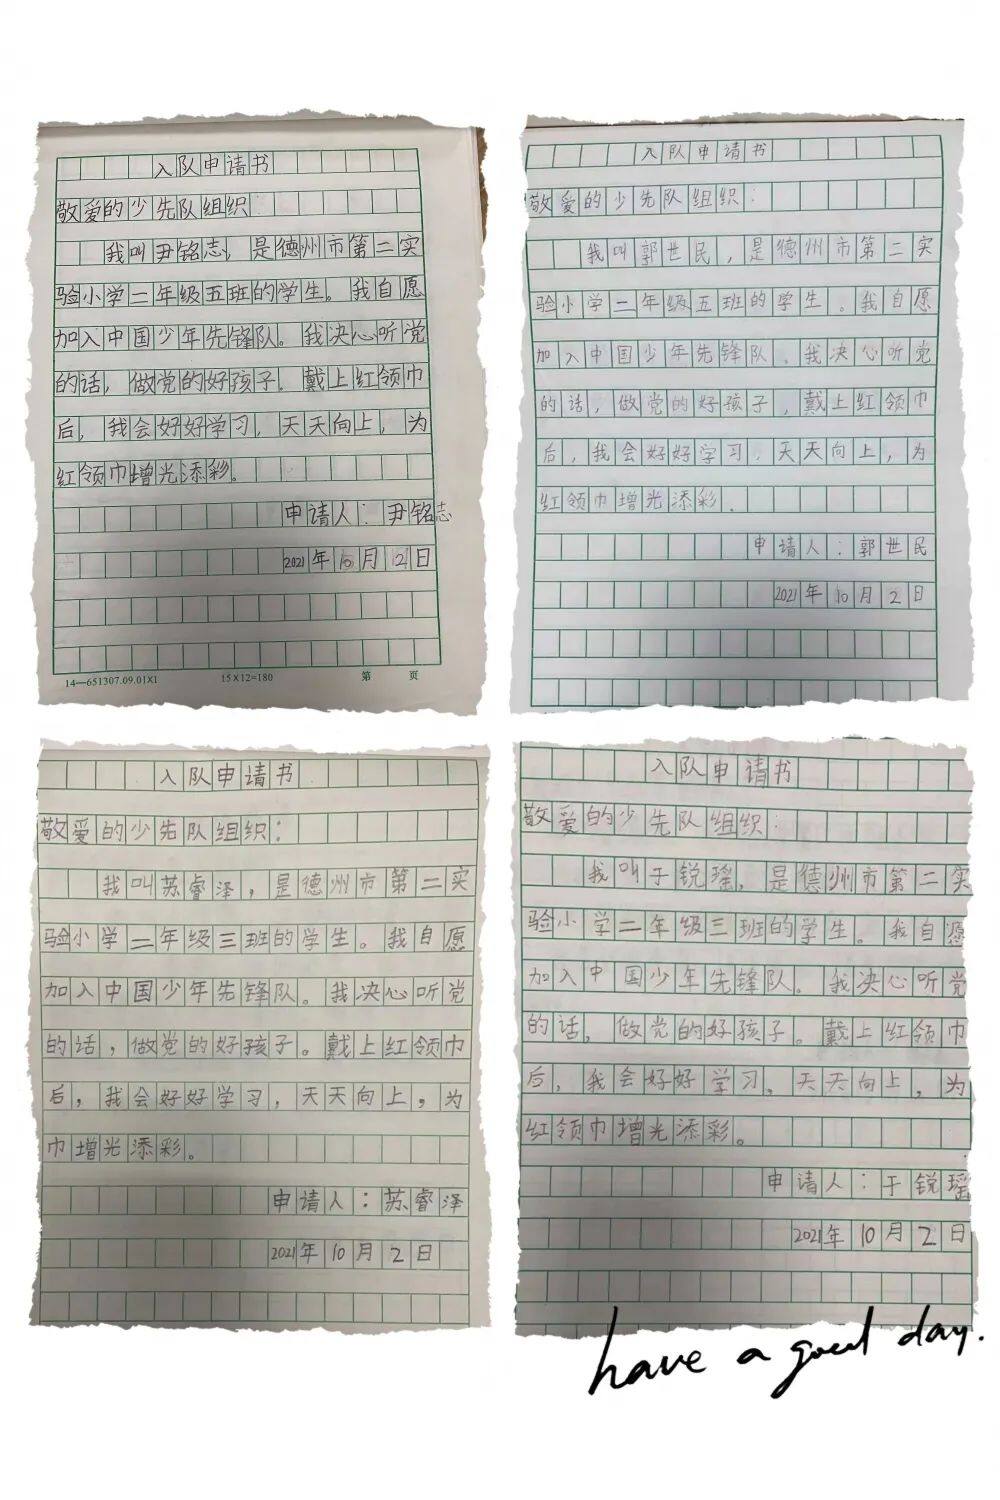 入队申请书
敬爱的少先队组织:
我叫尹铭志,是德州市第二实
验小学二年级五班的学生。我自愿
加入中国少年先锋队。我决心听党
的话,做党的好孩子。戴上红领巾
后,我会好好学习,天天向上,为
红领巾增光添彩。
申请人:尹铭志
2021年10月12日
14—651307.09.01X1 15X12=180 第 页
入队申请书
敬爱的少先队组织:
我叫郭世民,是德州市第二实
验小学二年级五班的学生。我自愿
加入中国少年先锋队。我决心听党
的话,做党的好孩子,戴上红领巾
后,我会好好学习,天天向上,为
红领巾增光添彩.
申请人:郭世民
2021年10月2日
入队申请书
敬爱的少先队组织:
我叫苏睿泽,是德州市第二实
验小学二年级三班的学生。我自愿
加入中国少年先锋队。我决心听党
的话,做党的好孩子。戴上红领巾
后,我会好好学习,天天向上,为
巾增光添彩。
申请人:苏睿泽
2021年10月2日
入队申请书
敬爱的少先队组织:
我叫于锐瑶,是德州市第二实
验小学二年级三班的学生。我自愿
加入中国少年先锋队。我决心听党
的话,做党的好孩子。戴上红领巾
后,我会好好学习,天天向上,为
红领巾增光添彩。
申请人:于锐瑶
2021年10月2日
have a good day.